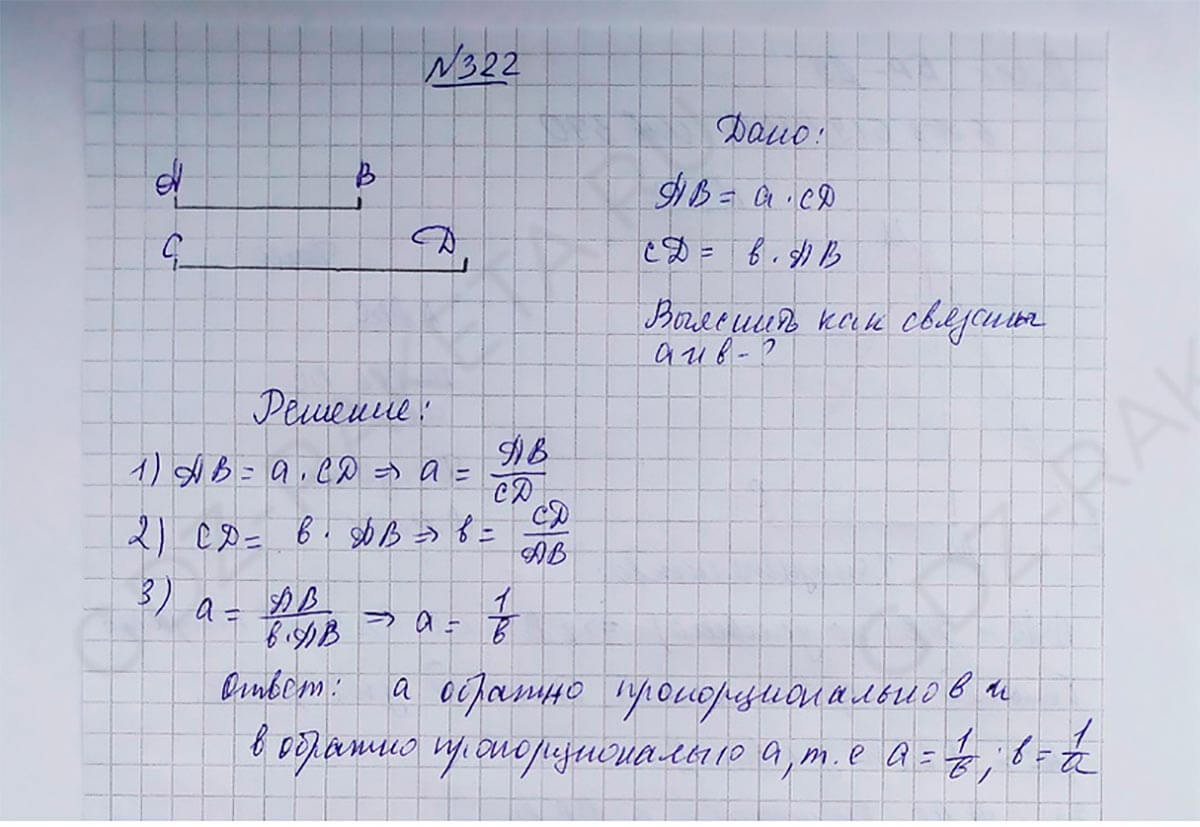 №322
Дано:
A B
AB = a · CD
C D
CD = в · AB
Выяснить как связаны
a и в - ?
Решение:
1) AB = a · CD ⇒ a = AB/CD
2) CD = в · AB ⇒ в = CD/AB
3) a = AB/в·AB ⇒ a = 1/в
Ответ: a обратно пропорционально в и
в обратно пропорционально a, т.е a = 1/в ; в = 1/a
GDZ-RAKETA.RU
GDZ-RAK